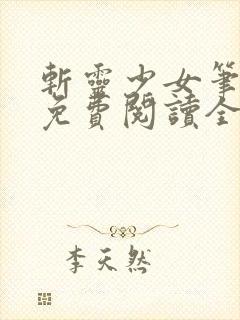 斬靈少女筆
免費閱讀全
李天然